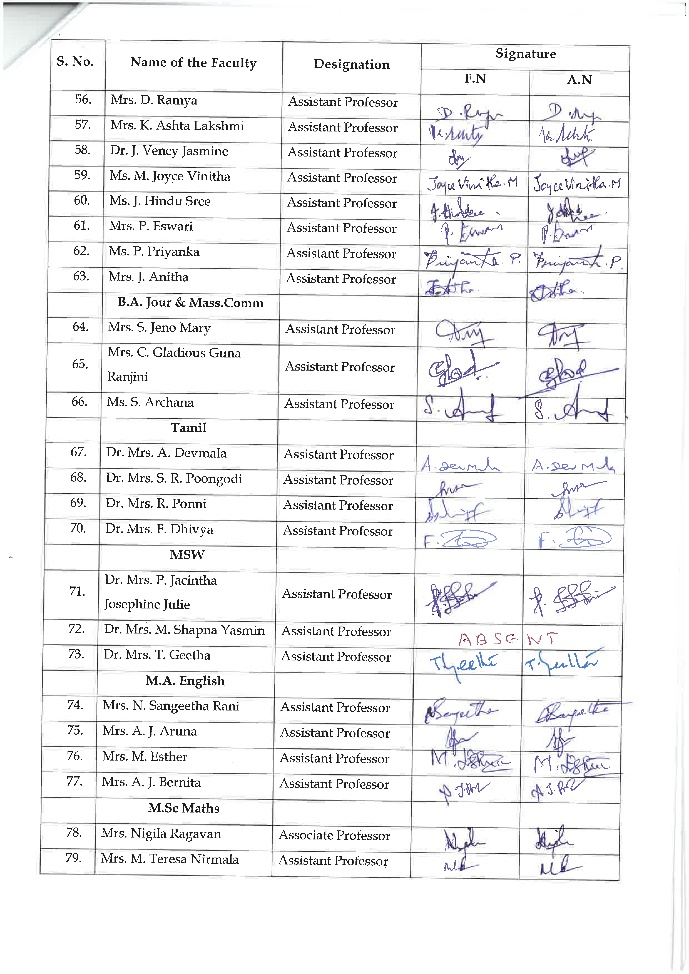 S. No. Name of the Faculty Designation Signature
F.N A.N
56. Mrs. D. Ramya Assistant Professor
57. Mrs. K. Ashta Lakshmi Assistant Professor
58. Dr. J. Vency Jasmine Assistant Professor
59. Ms. M. Joyce Vinitha Assistant Professor Joyce Vinitha. M Joyce Vinitha. M
60. Ms. J. Hindu Sree Assistant Professor
61. Mrs. P. Eswari Assistant Professor
62. Ms. P. Priyanka Assistant Professor Priyanka P. Priyanka. P.
63. Mrs. J. Anitha Assistant Professor
B.A. Jour & Mass.Comm
64. Mrs. S. Jeno Mary Assistant Professor
65. Mrs. C. Gladious Guna
Ranjini Assistant Professor
66. Ms. S. Archana Assistant Professor
Tamil
67. Dr. Mrs. A. Devmala Assistant Professor
68. Dr. Mrs. S. R. Poongodi Assistant Professor
69. Dr. Mrs. R. Ponni Assistant Professor
70. Dr. Mrs. F. Dhivya Assistant Professor
MSW
71. Dr. Mrs. P. Jacintha
Josephine Julie Assistant Professor
72. Dr. Mrs. M. Shapna Yasmin Assistant Professor ABSENT
73. Dr. Mrs. T. Geetha Assistant Professor
M.A. English
74. Mrs. N. Sangeetha Rani Assistant Professor
75. Mrs. A. J. Aruna Assistant Professor
76. Mrs. M. Esther Assistant Professor
77. Mrs. A. J. Bernita Assistant Professor
M.Sc Maths
78. Mrs. Nigila Ragavan Associate Professor
79. Mrs. M. Teresa Nirmala Assistant Professor